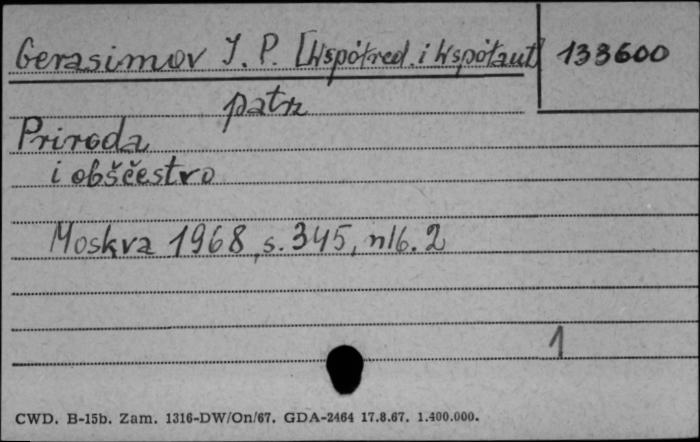 Gerasimov I. P. [Współred. i współaut] 133600
patrz
Priroda
i obščestvo
Moskva 1968, s. 345, nlb. 2
1
CWD. B-15b. Zam. 1316-DW/On/67. GDA-2464 17.8.67. 1.400.000.